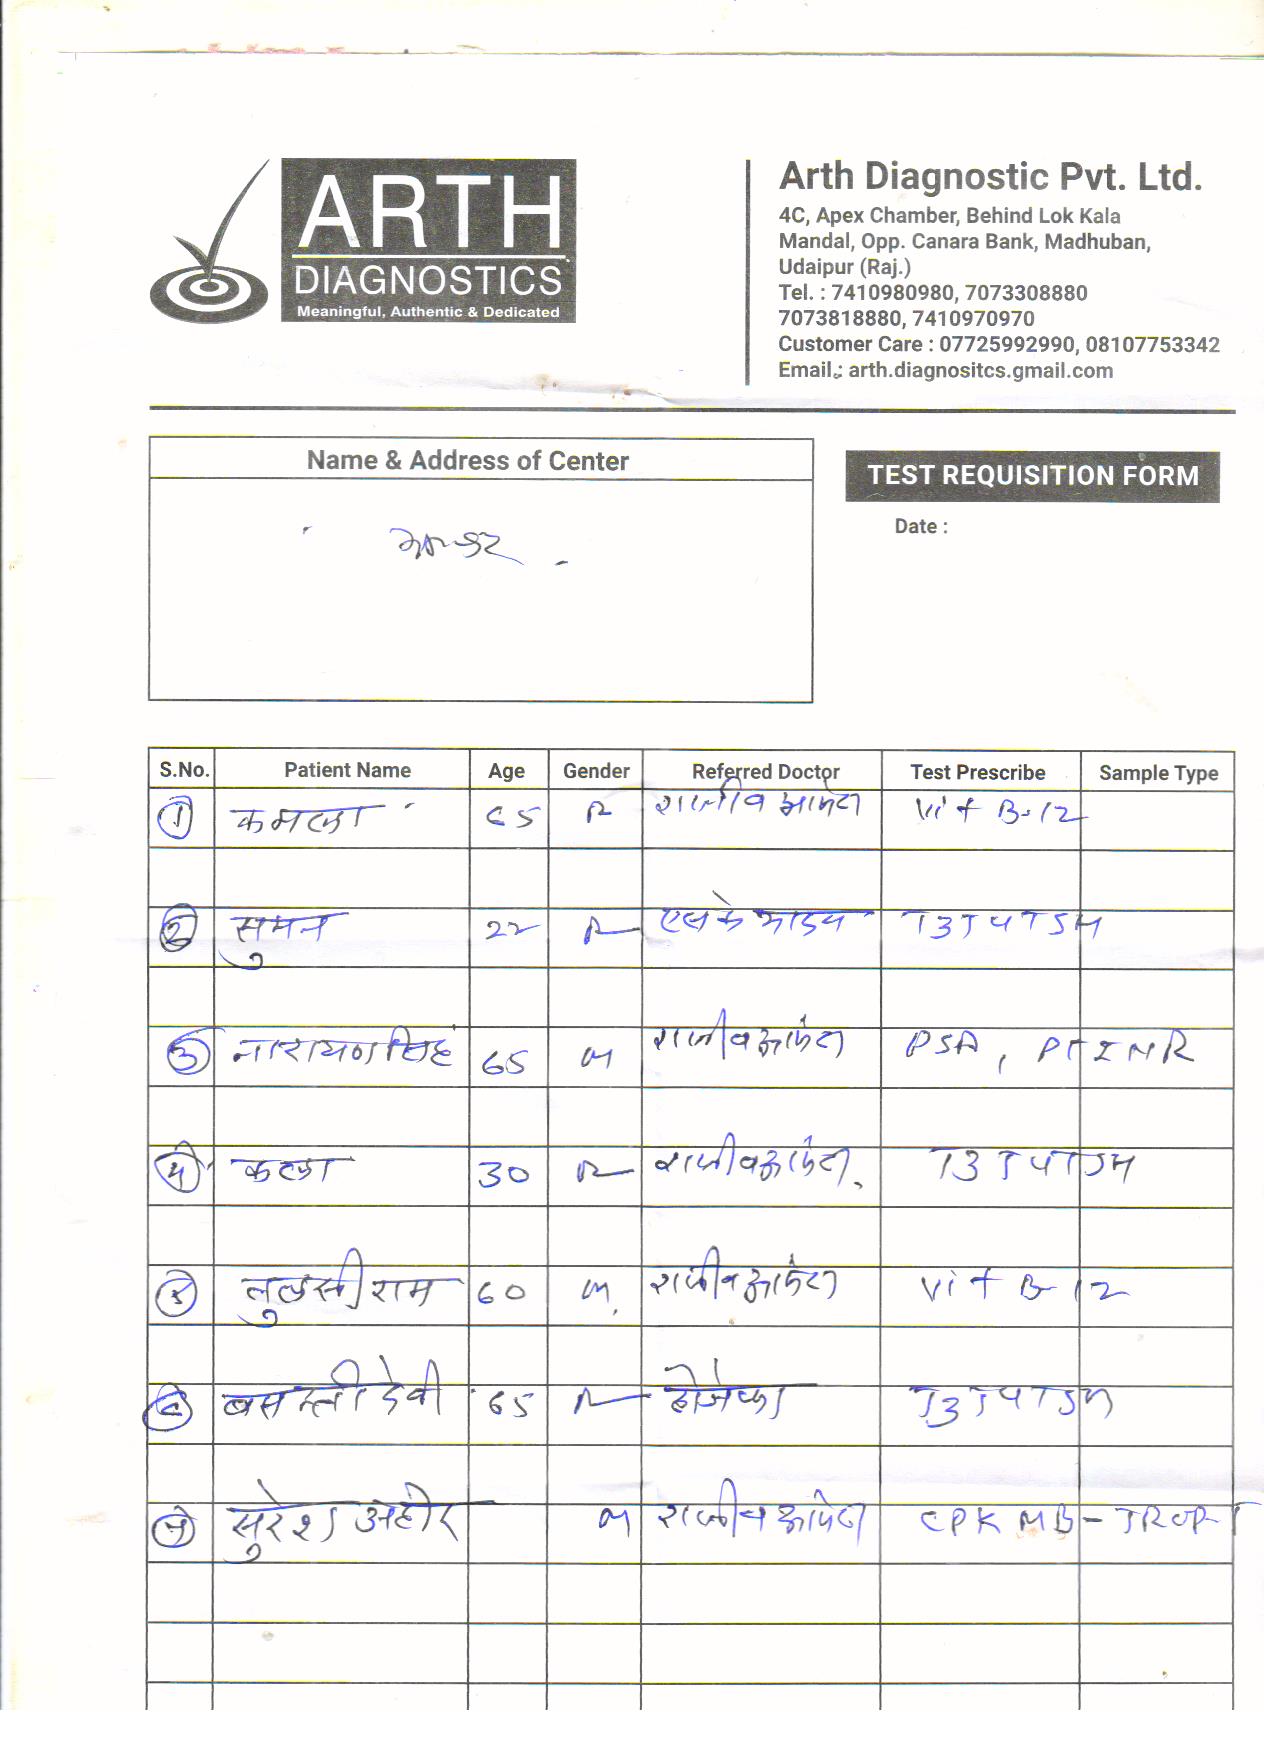 ARTH
DIAGNOSTICS
Meaningful, Authentic & Dedicated
Arth Diagnostic Pvt. Ltd.
4C, Apex Chamber, Behind Lok Kala
Mandal, Opp. Canara Bank, Madhuban,
Udaipur (Raj.)
Tel. : 7410980980, 7073308880
7073818880, 7410970970
Customer Care : 07725992990, 08107753342
Email.: arth.diagnositcs.gmail.com
Name & Address of Center
TEST REQUISITION FORM
Date :
S.No. Patient Name Age Gender Referred Doctor Test Prescribe Sample Type
1 कमला 65 Vit B-12
2 सुमन 22 T3T4TSH
3 नारायण सिंह 65 M राजीव PSA, PTINR
4 कला 30 राजीव T3T4TSH
5 तुलसीराम 60 M. राजीव Vit B-12
6 बसन्ती देवी 65 T3T4TSH
7 सुरेश अहीर M राजीव CPK MB - TROP-T